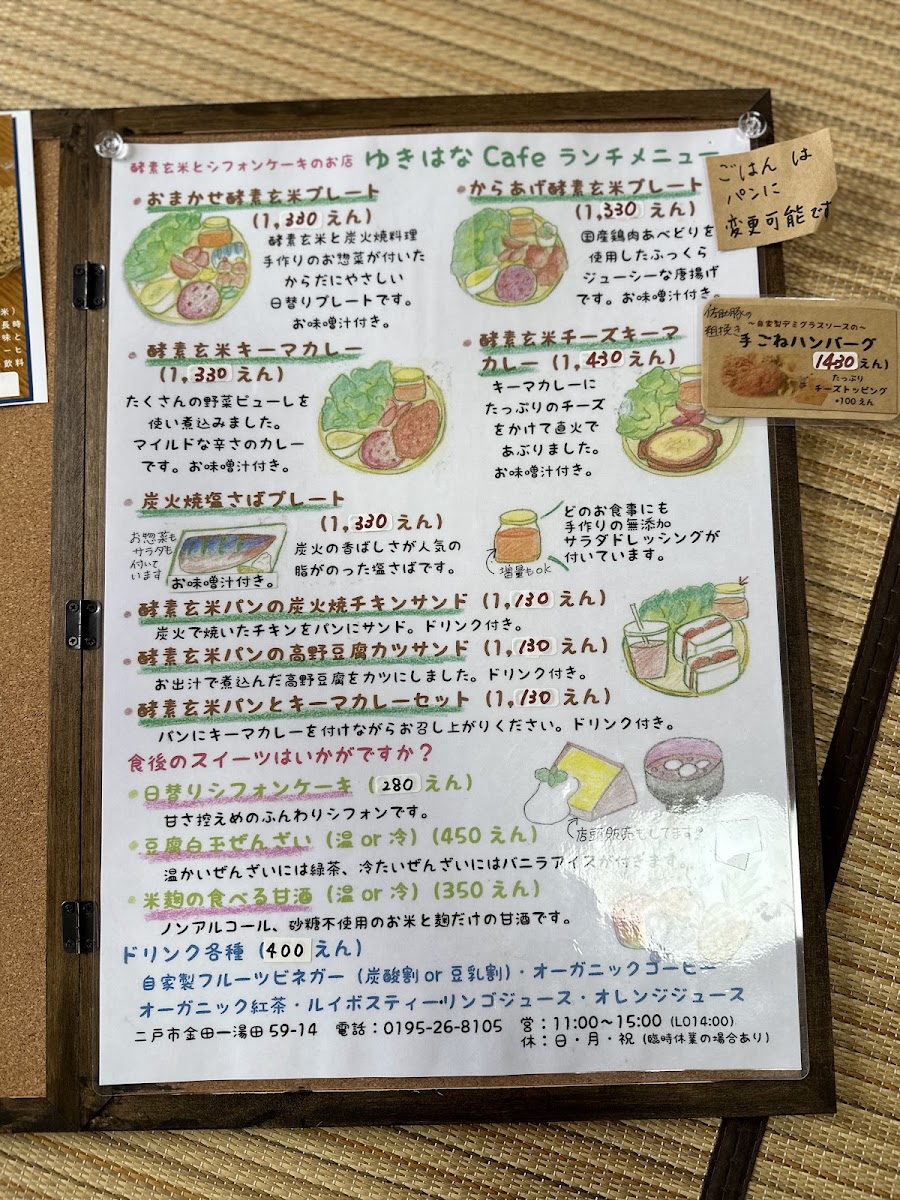 酵素玄米とシフォンケーキのお店 ゆきはな Cafe ランチメニュー
・おまかせ酵素玄米プレート
(1,330えん)
酵素玄米と炭火焼料理
手作りのお惣菜が付いた
からだにやさしい
日替りプレートです。
お味噌汁付き。
・からあげ酵素玄米プレート
(1,330えん)
国産鶏肉あべどりを
使用したふっくら
ジューシーな唐揚げ
です。お味噌汁付き。
ごはん は
パンに
変更可能です
・酵素玄米キーマカレー
(1,330えん)
たくさんの野菜ピューレを
使い煮込みました。
マイルドな辛さのカレー
です。お味噌汁付き。
・酵素玄米チーズキーマ
カレー (1,430えん)
キーマカレーに
たっぷりのチーズ
をかけて直火で
あぶりました。
お味噌汁付き。
佐助豚の
粗挽き
～自家製デミグラスソースの～
手ごねハンバーグ
1430えん)
たっぷり
チーズトッピング
+100えん
・炭火焼塩さばプレート
(1,330えん)
炭火の香ばしさが人気の
脂がのった塩さばです。
お惣菜も
サラダも
付いて
います
お味噌汁付き。
どのお食事にも
手作りの無添加
サラダドレッシングが
付いています。
増量もOK
・酵素玄米パンの炭火焼チキンサンド (1,130えん)
炭火で焼いたチキンをパンにサンド。ドリンク付き。
・酵素玄米パンの高野豆腐カツサンド (1,130えん)
お出汁で煮込んだ高野豆腐をカツにしました。ドリンク付き。
・酵素玄米パンとキーマカレーセット (1,130えん)
パンにキーマカレーを付けながらお召し上がりください。ドリンク付き。
食後のスイーツはいかがですか？
・日替りシフォンケーキ (280えん)
甘さ控えめのふんわりシフォンです。
店頭販売もしてます！
・豆腐白玉ぜんざい (温 or 冷) (450えん)
温かいぜんざいには緑茶、冷たいぜんざいにはバニラアイスが付きます。
・米麹の食べる甘酒 (温 or 冷) (350えん)
ノンアルコール、砂糖不使用のお米と麹だけの甘酒です。
ドリンク各種 (400えん)
自家製フルーツビネガー (炭酸割 or 豆乳割)・オーガニックコーヒー
オーガニック紅茶・ルイボスティー・リンゴジュース・オレンジジュース
二戸市金田一湯田59-14 電話：0195-26-8105 営：11:00～15:00 (LO14:00)
休：日・月・祝 (臨時休業の場合あり)
米)
長時
味と
ーヒ
飲料